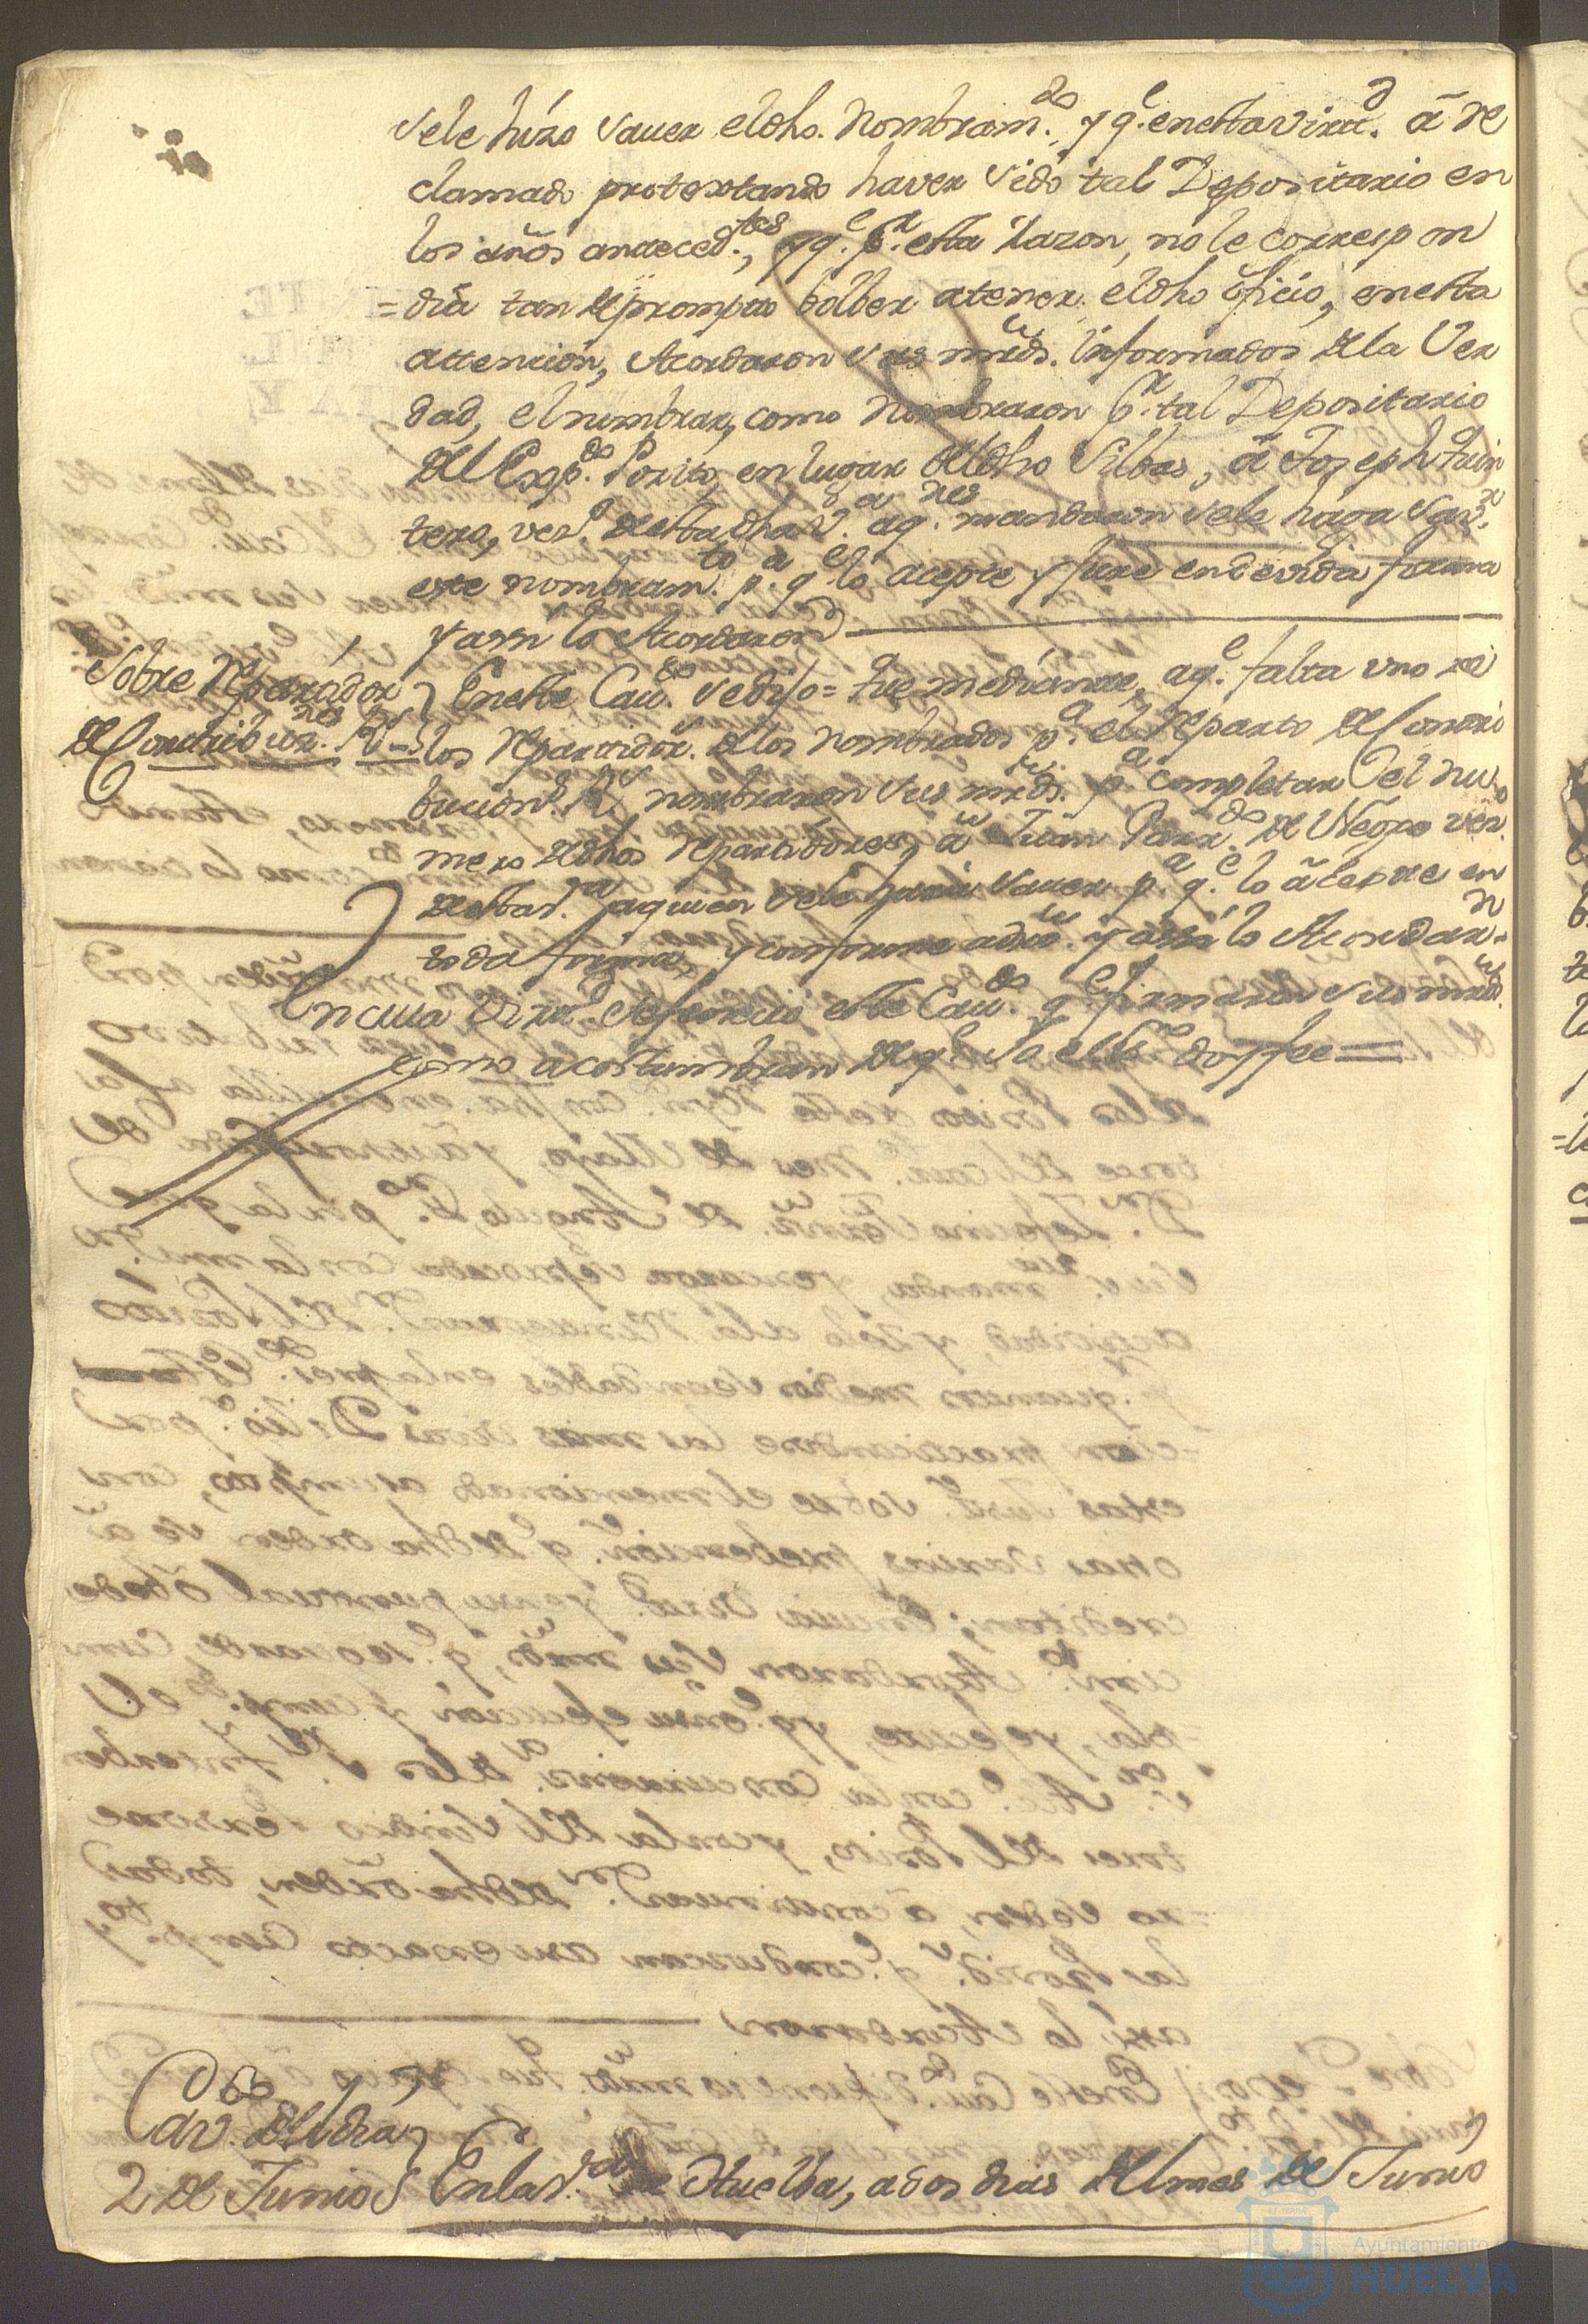 Se le hizo Sauer el dho. Nombram.to, y q.e en esta Virtd. â Re
clamado protextando haver Sido tal Depositario en
los años anteced.tes, y q.e p.r esta Razon, no le correspon
=dia tan de prompto bolber a tener el dho oficio, en esta
attencion, Acordaron sus mrds. Informados de la Ver
dad, el nombrar, como Nombraron p.r tal Depositario
del Exp.do Posito, en lugar del dho Silbas, â Joseph Quin
tero, vez.o de esta dha V.a a q.n mandaron se le haga Sav.r
este nombram.to p.a q.e lo acepte y Jure en devida forma
y assi lo Acordaron
Sobre Repartidor
de Contribuz.nes R.s
En este Cau.do se dijo = Que mediante, a q.e falta uno de
los Repartidor. de los Nombrados p.a el Reparto de Contri
bucion.s R.s nombraron sus mrds. p.a completar el nu
mero de dhos Repartidores, â Juan Parr.do de Negro vez.o
de esta V.a a quien se le haria Sauer p.a q.e lo âcepte en
toda forma, y conforme a dro. y assi lo Acordar.n
En cuia Virtd. se feneció este Cau.do q.e firmaron sus mrds.
como acostumbran de q.e Yo el Ess.no doy fee
Cav.do del dia
2 de Junio
En la V.a de Huelba, a dos dias del mes de Junio
Ayuntamiento
HUELVA